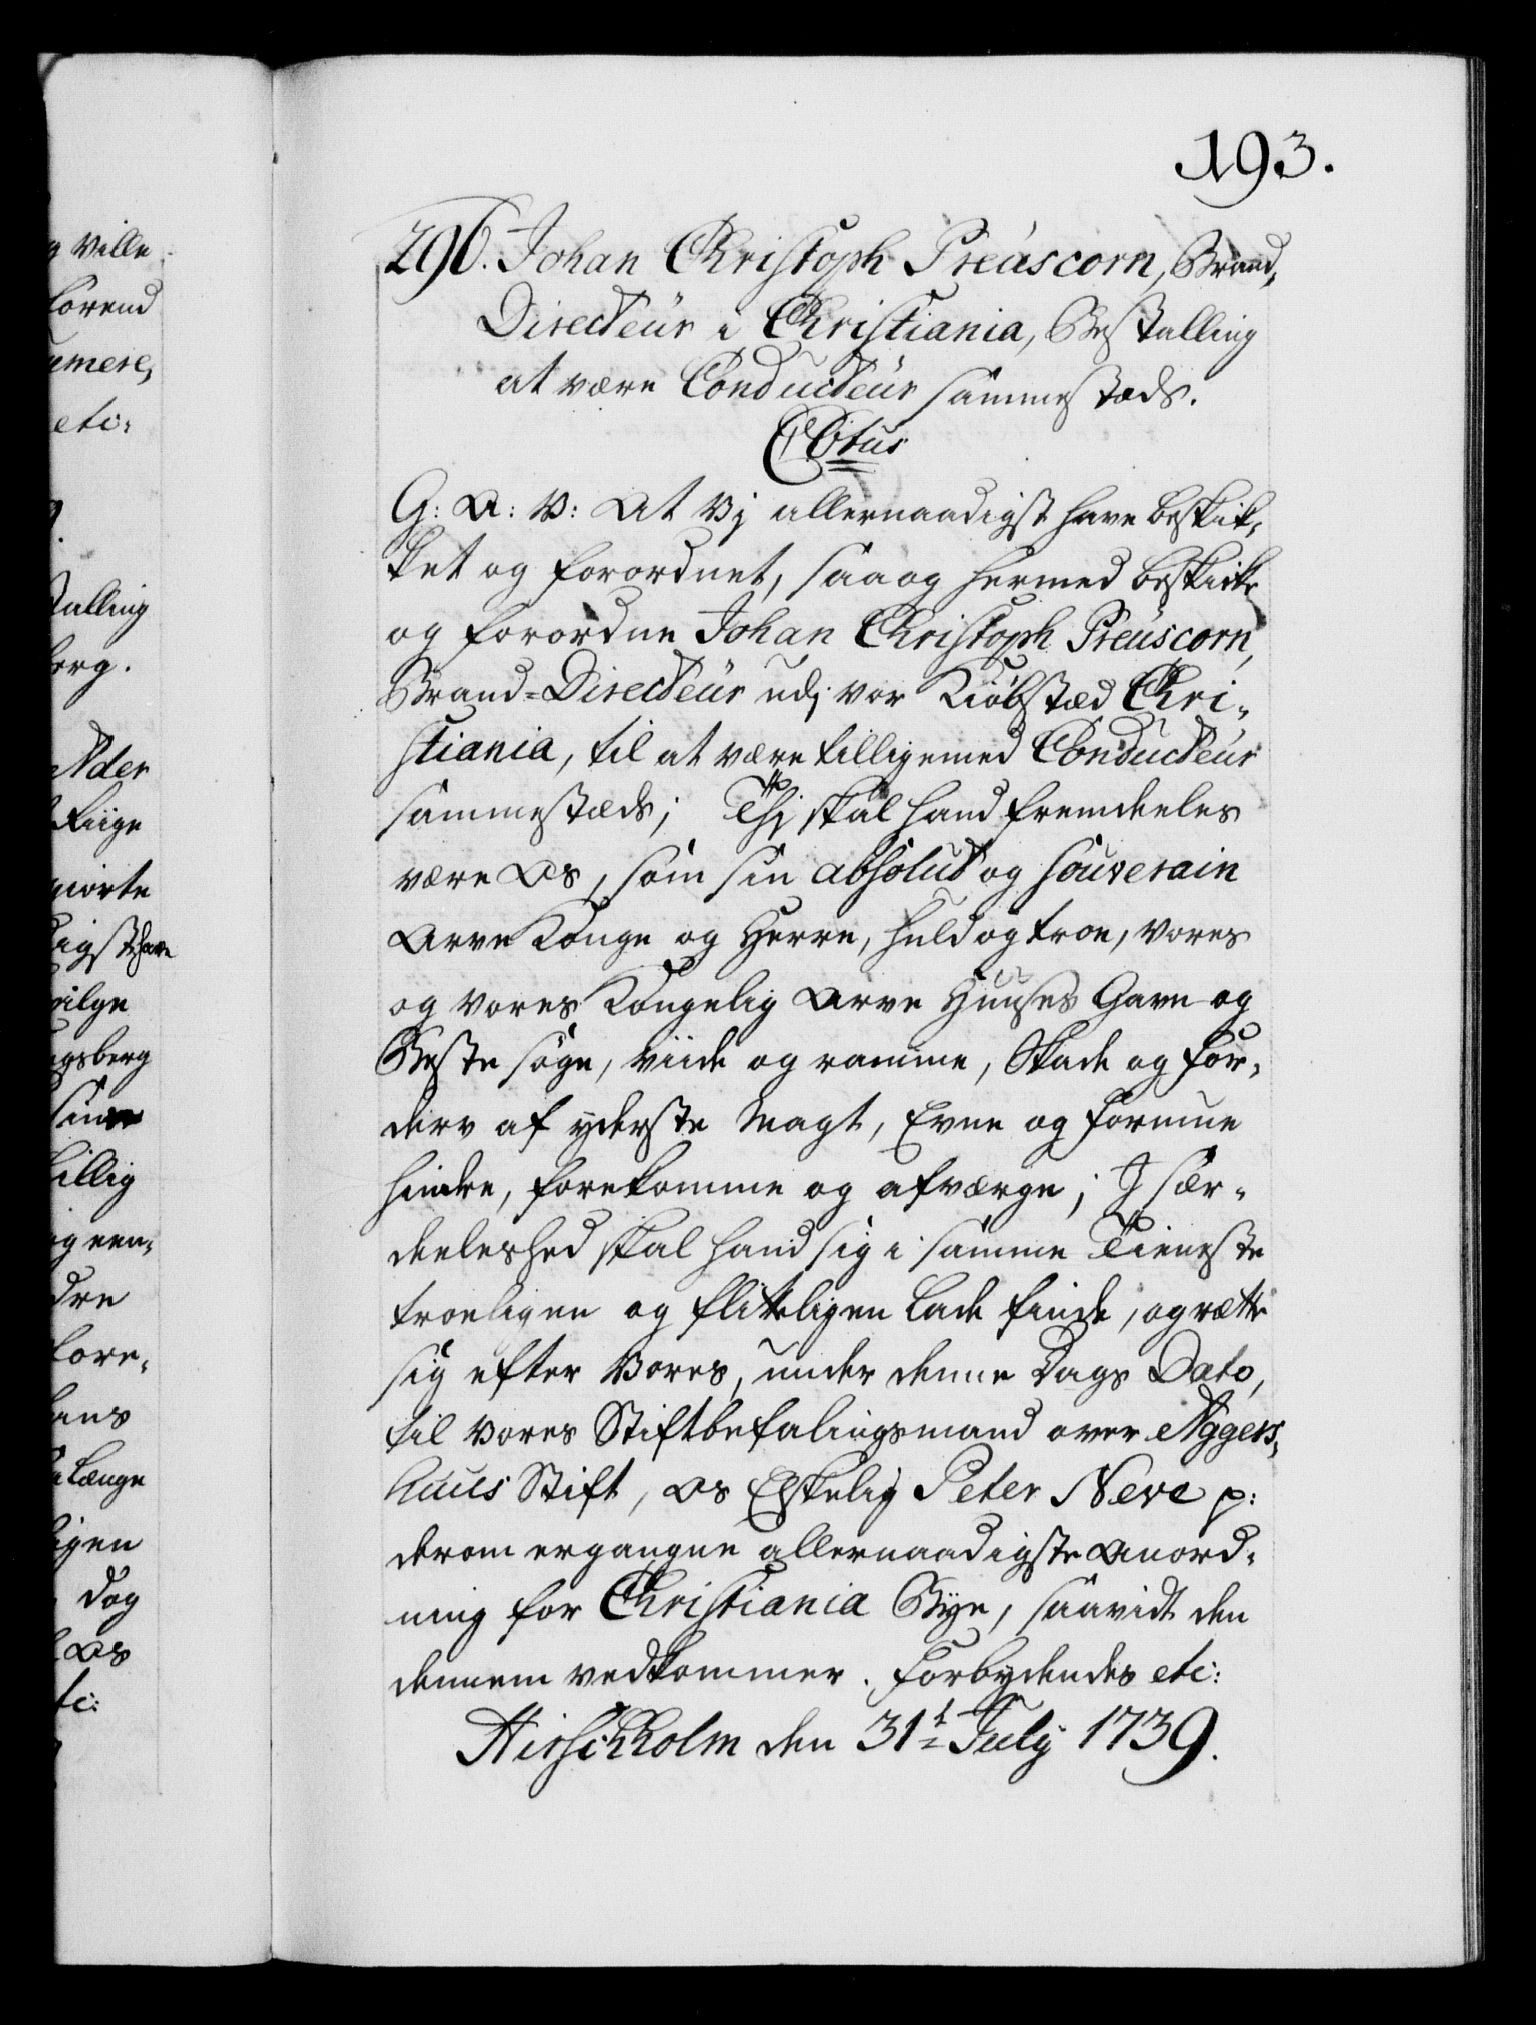 193.
296. Johan Christoph Preüscorn, Brand-
Directeur i Christiania, Bestalling
at være Conducteur sammestæds.
C 6tus
G: A: V: At Vj allernaadigst have beskik-
ket og forordnet, saa og hermed beskikke
og forordne Johan Christoph Preüscorn,
Brand-Directeur udj vor Kiøbstæd Chri-
stiania, til at være tilligemed Conducteur
sammestæds; Thj skal hand fremdeeles
være Os, som sin absolut og souverain
Arve Konge og Herre, huld og troe, vores
og vores Kongelig Arve Huuses Gavn og
Beste søge, viide og ramme, Skade og for-
derv af yderste Magt, Evne og formue
hindre, forekomme og afværge; J sær-
deeleshed skal hand sig i samme Tieneste
troeligen og flitteligen lade finde, og rætte
sig efter Vores, under denne Dags Dato,
til Vores Stiftbefalingsmand over Aggers-
huus Stift, Os Elskelig Peter Neve p:
derom ergangne allernaadigste Anord-
ning for Christiania Bye, saavidt den
dennem vedkommer. Forbydendes etc:
Hirschholm den 31t July 1739.
g Ville
forend
etc:
talling
berg.
Alder
Riige
giorte
digst have
ngsberg
sin
billig
dre
fore-
hans
længe
ligen
dog
Os
tc: